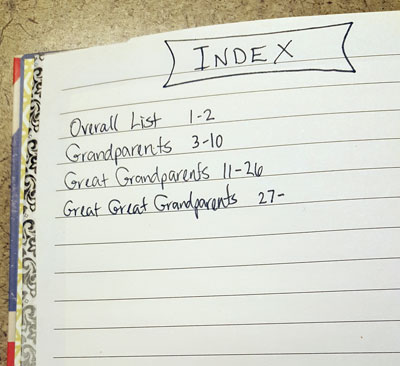 INDEX
Overall List 1-2
Grandparents 3-10
Great Grandparents 11-26
Great Great Grandparents 27-